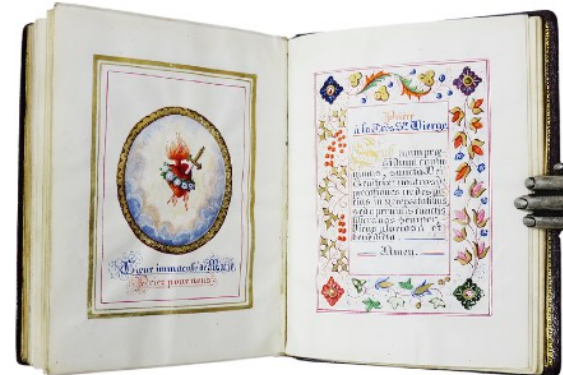 Cœur immaculé de Marie
Priez pour nous
Prière
à la Très Ste Vierge.
Sub tuum præ
sidium confu
gimus, sancta Dei
Genitrix nostras de
precationes ne despi
cias in necessitatibus
sed a periculis cunctis
libera nos semper,
Virgo gloriosa et
benedicta.
Amen.